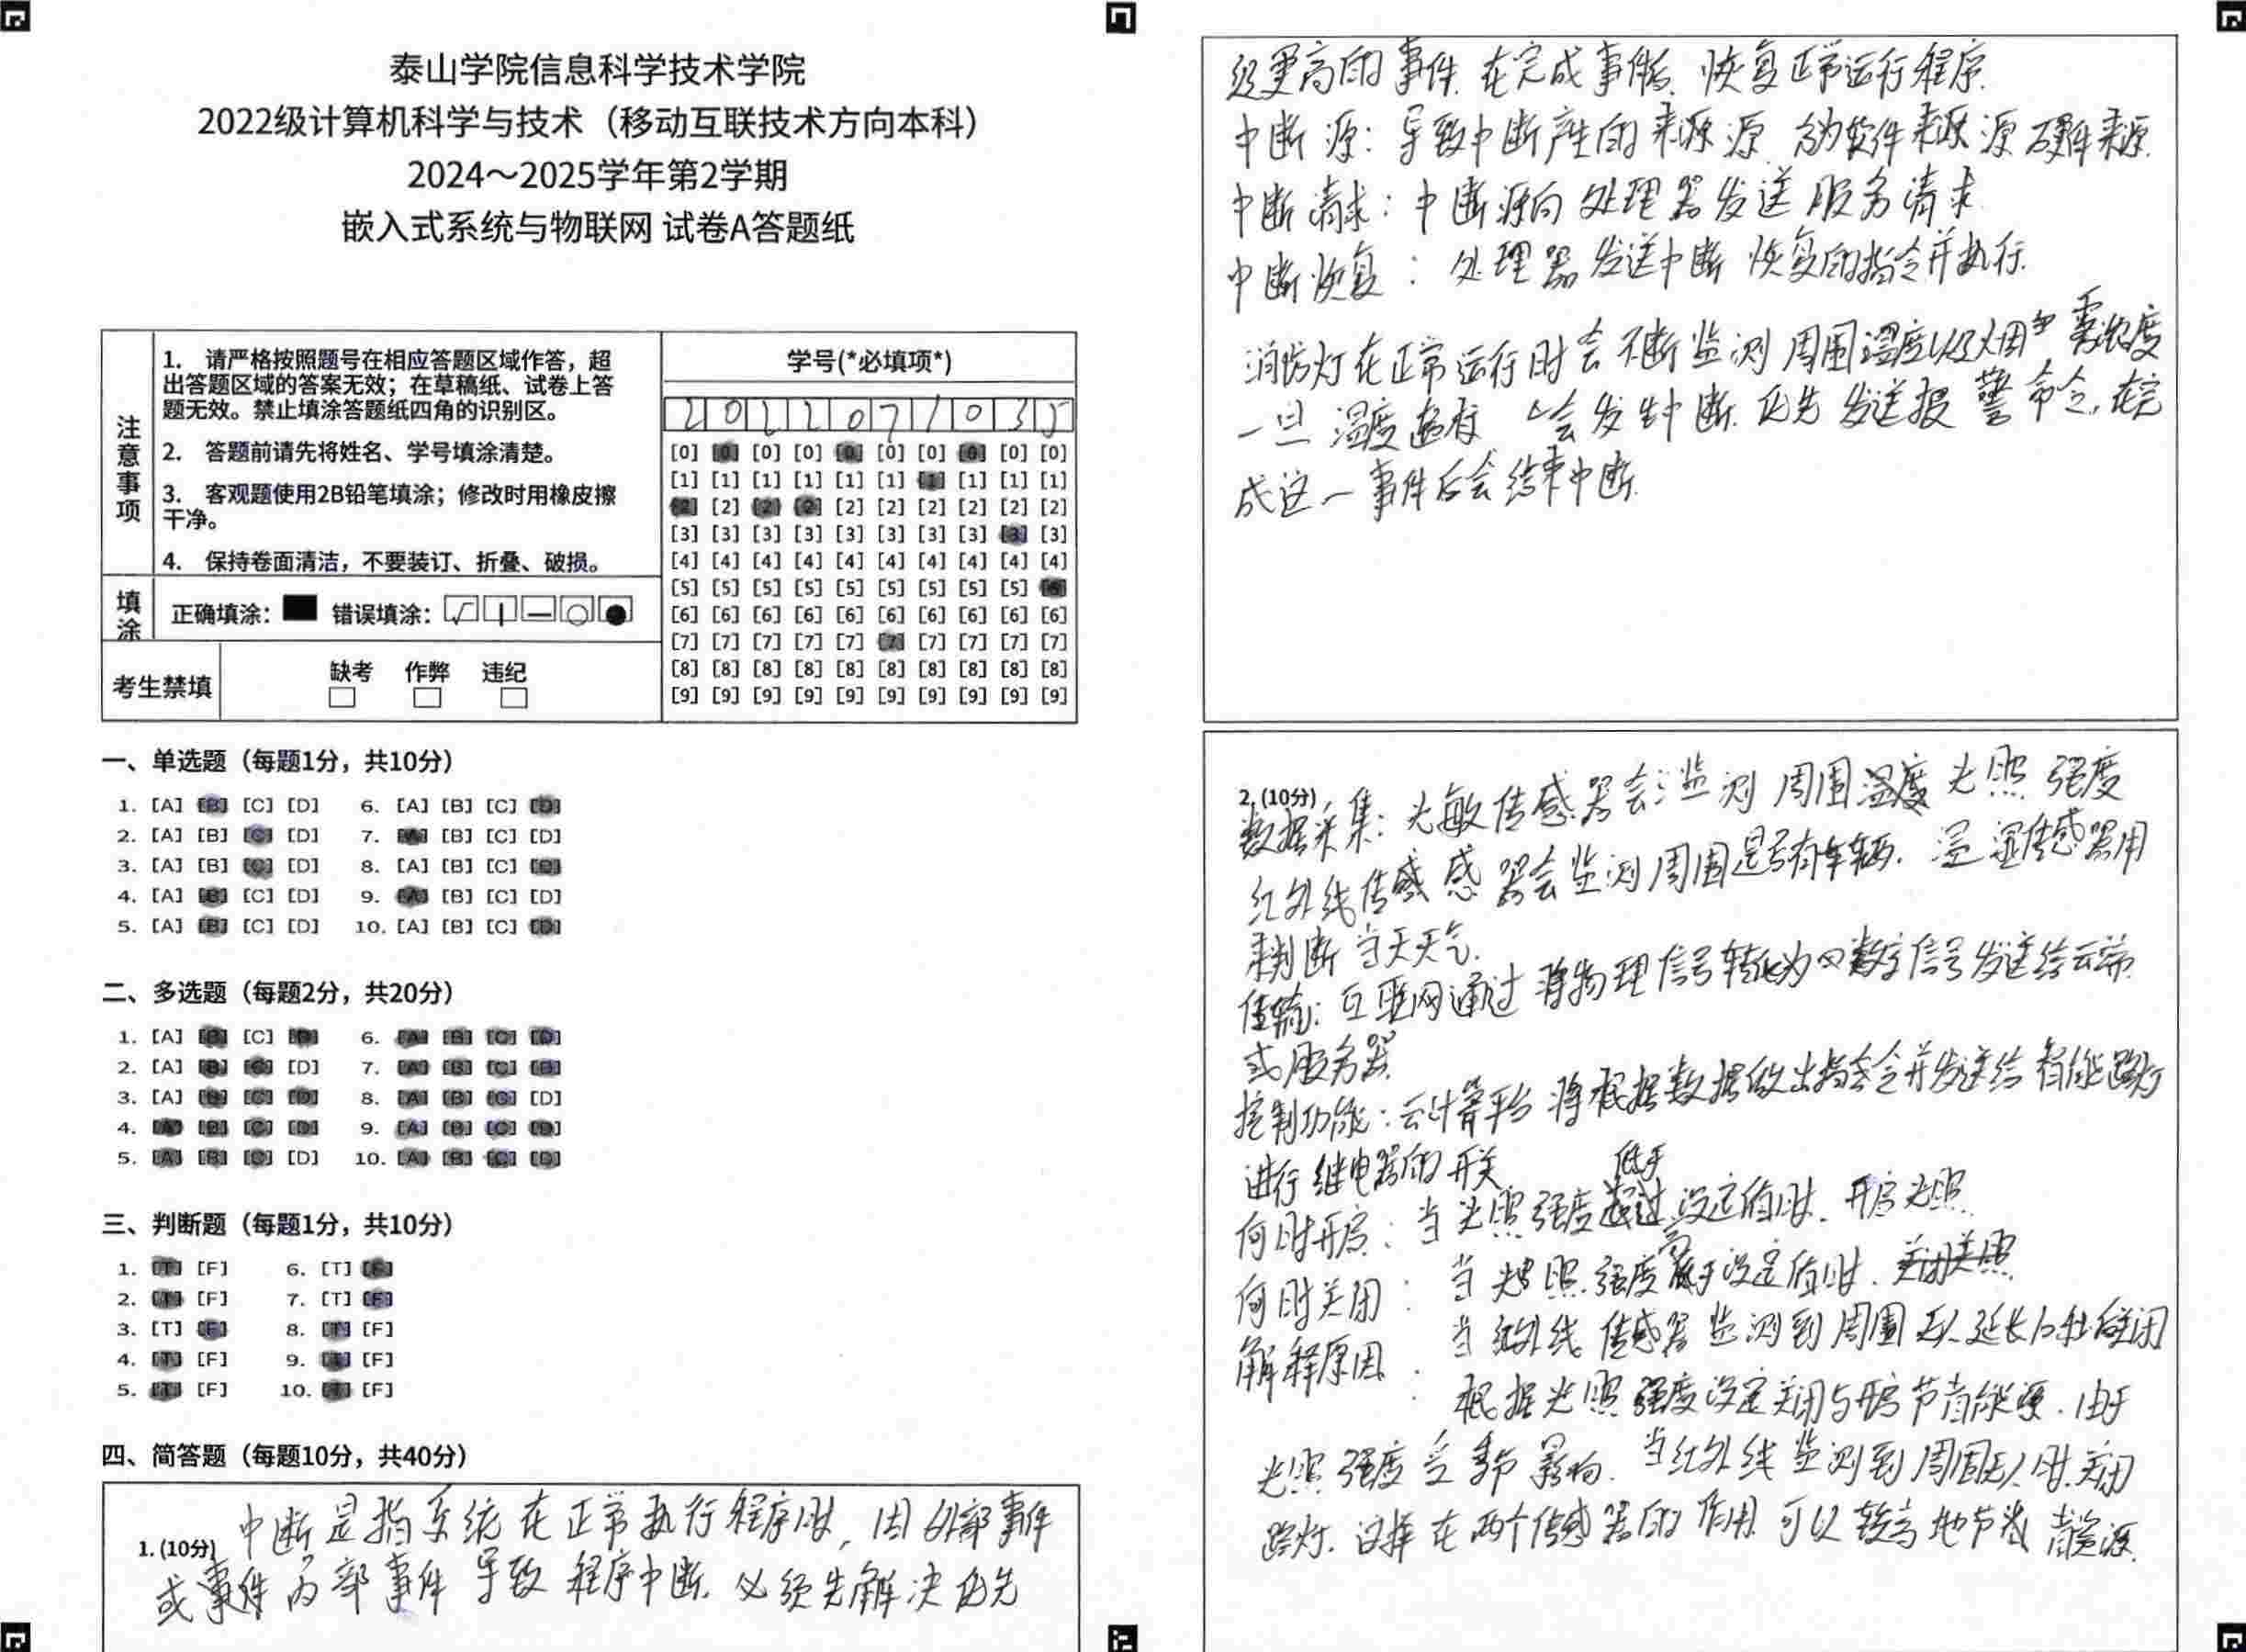 泰山学院信息科学技术学院
2022级计算机科学与技术（移动互联技术方向本科）
2024～2025学年第2学期
嵌入式系统与物联网 试卷A答题纸
注意事项
1. 请严格按照题号在相应答题区域作答，超
出答题区域的答案无效；在草稿纸、试卷上答
题无效。禁止填涂答题纸四角的识别区。
2. 答题前请先将姓名、学号填涂清楚。
3. 客观题使用2B铅笔填涂；修改时用橡皮擦
干净。
4. 保持卷面清洁，不要装订、折叠、破损。
填涂
正确填涂： 错误填涂：
考生禁填
缺考 作弊 违纪
学号(*必填项*)
2022071035
[0] [0] [0] [0] [0] [0] [0] [0] [0] [0]
[1] [1] [1] [1] [1] [1] [1] [1] [1] [1]
[2] [2] [2] [2] [2] [2] [2] [2] [2] [2]
[3] [3] [3] [3] [3] [3] [3] [3] [3] [3]
[4] [4] [4] [4] [4] [4] [4] [4] [4] [4]
[5] [5] [5] [5] [5] [5] [5] [5] [5] [5]
[6] [6] [6] [6] [6] [6] [6] [6] [6] [6]
[7] [7] [7] [7] [7] [7] [7] [7] [7] [7]
[8] [8] [8] [8] [8] [8] [8] [8] [8] [8]
[9] [9] [9] [9] [9] [9] [9] [9] [9] [9]
一、单选题（每题1分，共10分）
1. [A] [B] [C] [D] 6. [A] [B] [C] [D]
2. [A] [B] [C] [D] 7. [A] [B] [C] [D]
3. [A] [B] [C] [D] 8. [A] [B] [C] [D]
4. [A] [B] [C] [D] 9. [A] [B] [C] [D]
5. [A] [B] [C] [D] 10. [A] [B] [C] [D]
二、多选题（每题2分，共20分）
1. [A] [B] [C] [D] 6. [A] [B] [C] [D]
2. [A] [B] [C] [D] 7. [A] [B] [C] [D]
3. [A] [B] [C] [D] 8. [A] [B] [C] [D]
4. [A] [B] [C] [D] 9. [A] [B] [C] [D]
5. [A] [B] [C] [D] 10. [A] [B] [C] [D]
三、判断题（每题1分，共10分）
1. [T] [F] 6. [T] [F]
2. [T] [F] 7. [T] [F]
3. [T] [F] 8. [T] [F]
4. [T] [F] 9. [T] [F]
5. [T] [F] 10. [T] [F]
四、简答题（每题10分，共40分）
1. (10分) 中断是指系统在正常执行程序时，因外部事件
或事件内部事件导致程序中断.必须先解决优先
级更高的事件.在完成事件后.恢复正常运行程序.
中断源：导致中断产生的来源源.分为软件来源源硬件来源.
中断请求：中断源向处理器发送服务请求.
中断恢复：处理器发送中断恢复的指令并执行.
消防灯在正常运行时会不断监测周围温度以及烟雾浓度
一旦温度超标 会发生中断.优先发送报警命令.在完
成这一事件后会结束中断.
2. (10分)
数据采集：光敏传感器会监测周围温度光照强度
红外线传感感器会监测周围是否有车辆.温湿传感器用
来判断当天天气.
传输：互联网通过将物理信号转化为数字信号发送给云端
或服务器
控制功能：云计算平台将根据数据做出指令并发送给智能路灯
进行继电器的开关
何时开启：当光照强度低于设定值时.开启光照.
何时关闭：当光照强度高于设定值时.关闭光照
当红外线传感器监测到周围无人延长后关闭
解释原因：根据光照强度设定关闭与开启节省能源.由于
光照强度受季节影响.当红外线监测到周围无人时.关闭
路灯.这样在两个传感器的作用 可以较高地节省资源.